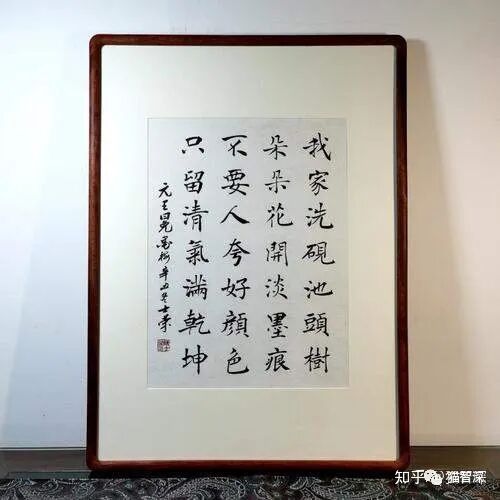 我家洗硯池頭樹
朵朵花開淡墨痕
不要人夸好顏色
只留清氣滿乾坤
元王冕墨梅辛丑冬士榮
知乎 猫智深